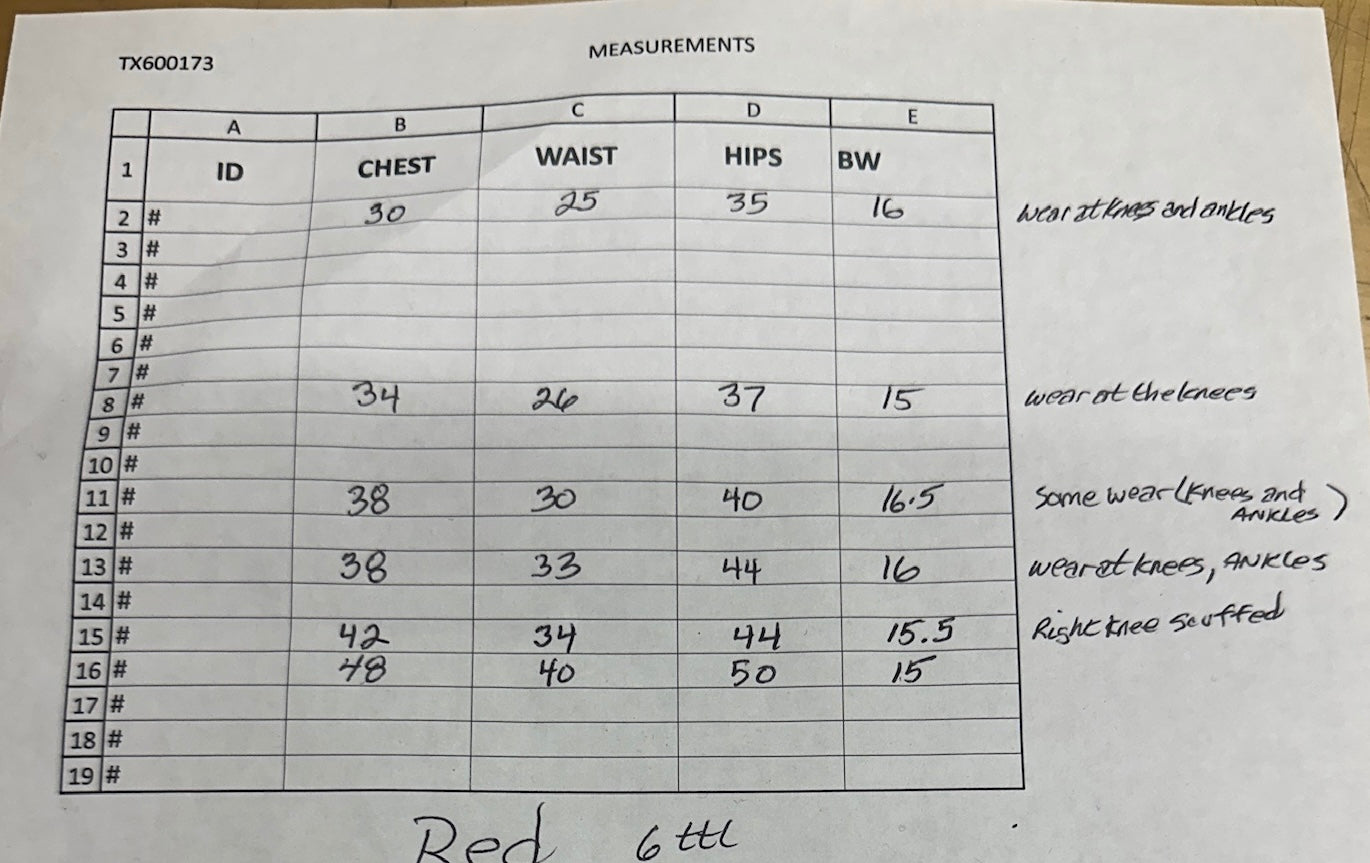 TX600173 MEASUREMENTS
A B C D E
1 ID CHEST WAIST HIPS BW
2 # 30 25 35 16 wear at knees and ankles
3 #
4 #
5 #
6 #
7 #
8 # 34 26 37 15 wear at the knees
9 #
10 #
11 # 38 30 40 16.5 Some wear (knees and
ANKLES)
12 #
13 # 38 33 44 16 wear at knees, ANKLES
14 #
15 # 42 34 44 15.5 Right knee scuffed
16 # 48 40 50 15
17 #
18 #
19 #
Red 6 ttl